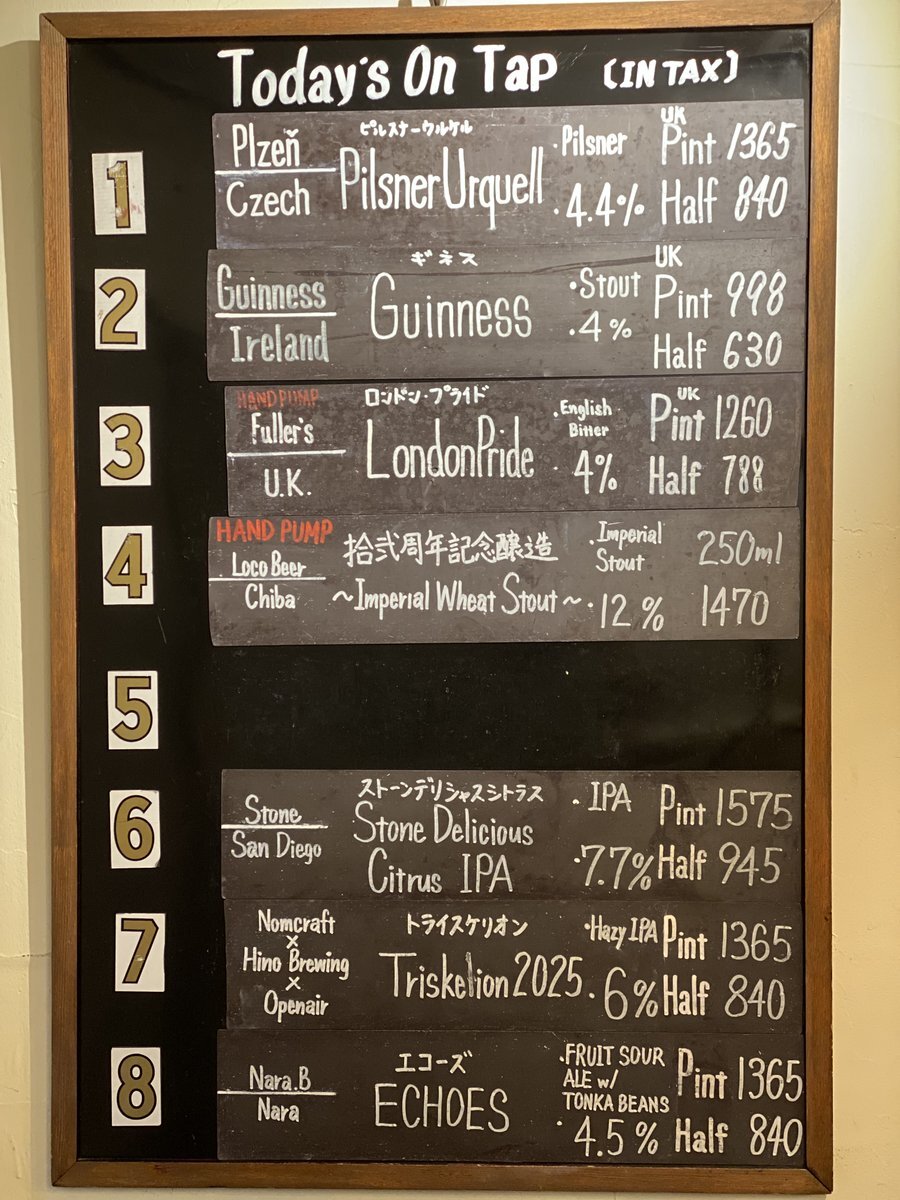 Today's On Tap (IN TAX)
1
Plzeň
Czech
ピルスナーウルケル
Pilsner Urquell
・Pilsner
・4.4%
UK
Pint 1365
Half 840
2
Guinness
Ireland
ギネス
Guinness
・Stout
・4%
UK
Pint 998
Half 630
3
HAND PUMP
Fuller's
U.K.
ロンドン・プライド
London Pride
・English
Bitter
・4%
UK
Pint 1260
Half 788
4
HAND PUMP
Loco Beer
Chiba
拾弐周年記念醸造
〜Imperial Wheat Stout〜
・Imperial
Stout
・12%
250ml
1470
5
6
Stone
San Diego
ストーンデリシャスシトラス
Stone Delicious
Citrus IPA
・IPA
・7.7%
Pint 1575
Half 945
7
Nomcraft
×
Hino Brewing
×
Openair
トライスケリオン
Triskelion 2025
・Hazy IPA
・6%
Pint 1365
Half 840
8
Nara.B
Nara
エコーズ
ECHOES
・FRUIT SOUR
ALE w/
TONKA BEANS
・4.5%
Pint 1365
Half 840